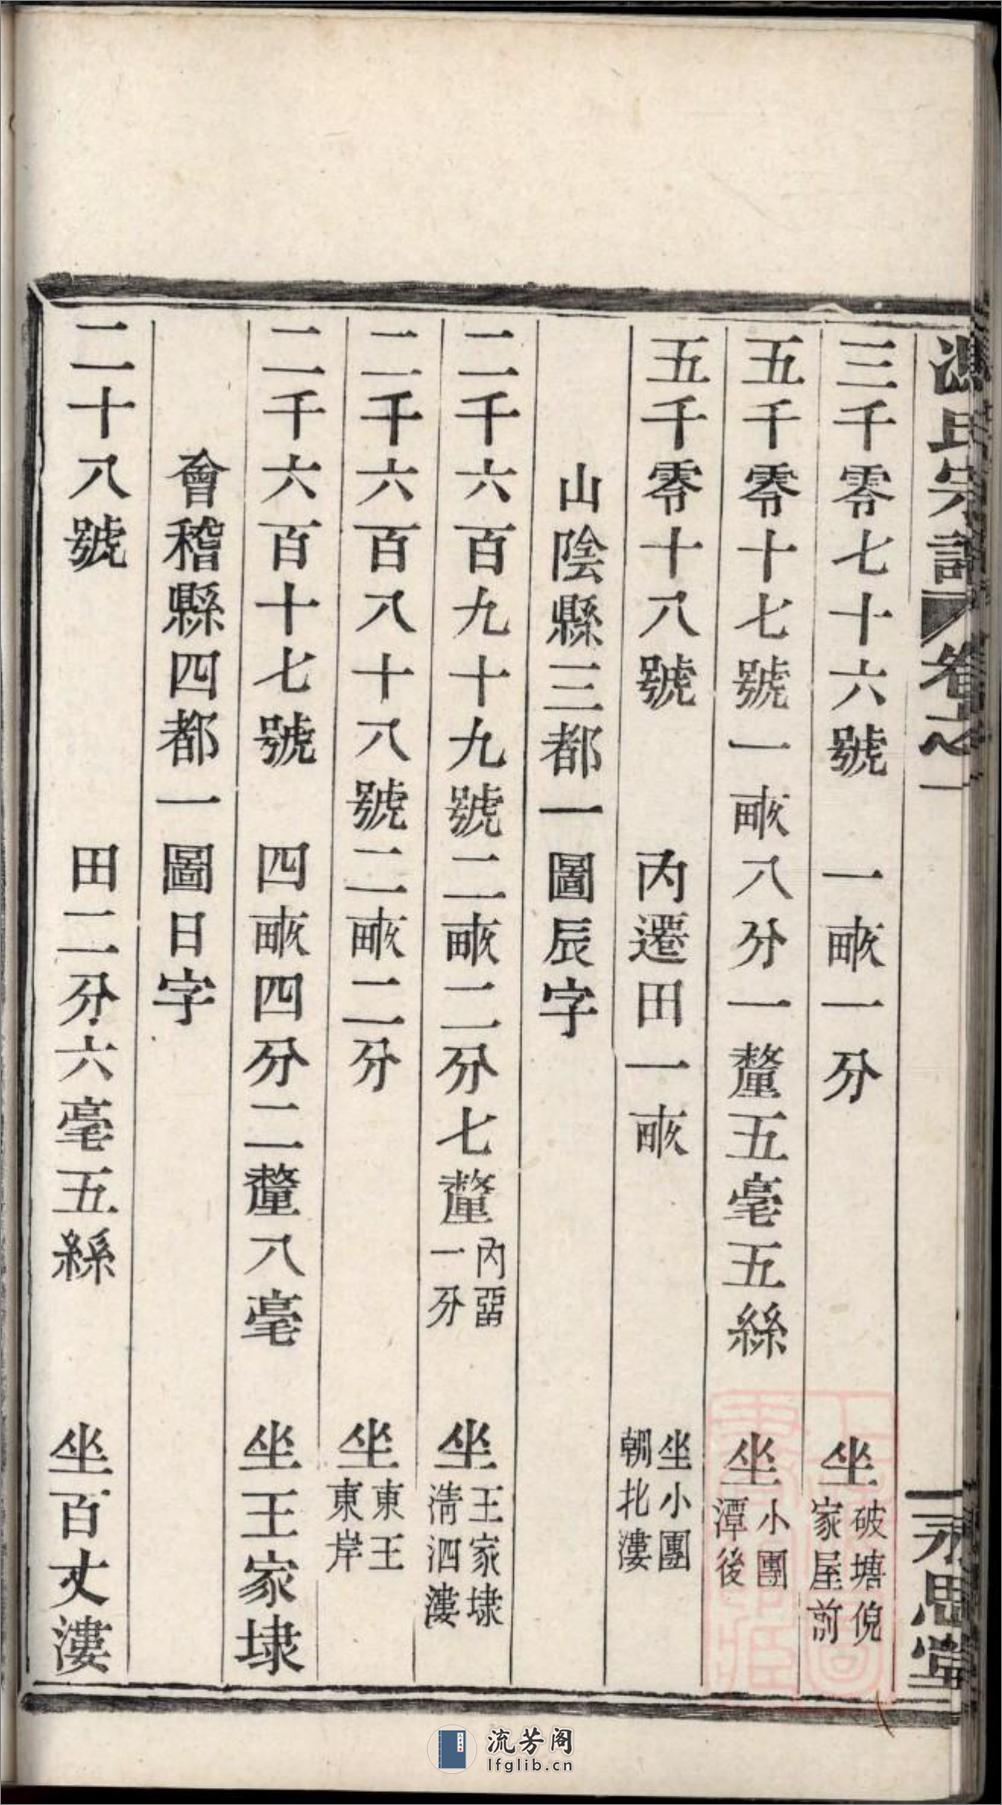 馮氏宗譜 卷之一 永思堂
三千零七十六號 一畞一分 坐破塘倪家屋前
五千零十七號一畞八分一釐五毫五絲 坐小團潭後
五千零十八號 內遷田一畞 坐小團朝北漊
山陰縣三都一圖辰字
二千六百九十九號二畞二分七釐內畱一分 坐王家埭淸泗漊
二千六百八十八號二畞二分 坐東王東岸
二千六百十七號 四畞四分二釐八毫 坐王家埭
會稽縣四都一圖日字
二十八號 田二分六毫五絲 坐百丈漊
流芳阁
lfglib.cn